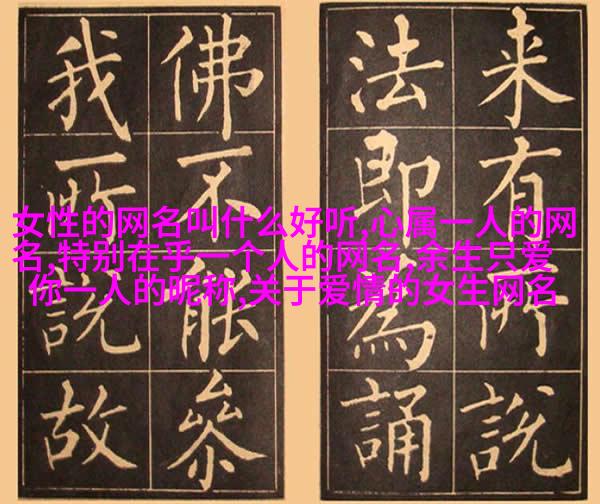 来有所說
法即為誦
佛不能參
我所說故
女性的网名叫什么好听,心属一人的网
名,特别在乎一个人的网名,余生只爱
你一人的昵称,关于爱情的女生网名